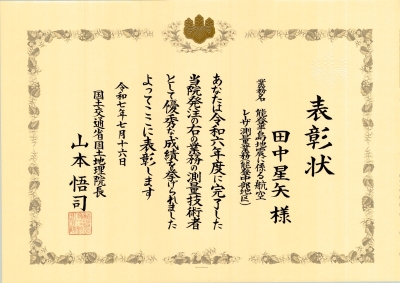 表彰状
田中星矢様
業務名 能登半島地震に係る航空
レーザ測量業務(能登中部地区)
あなたは令和六年度に完了した
当院発注の右の業務の測量技術者
として優秀な成績を挙げられました
よってここに表彰します
令和七年七月十六日
国土交通省国土地理院長
山本悟司